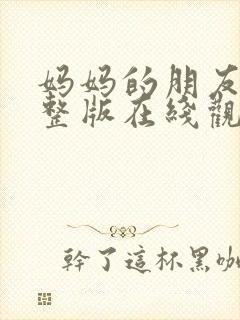 妈妈的朋友
整版在线觀
幹了這杯黑咖